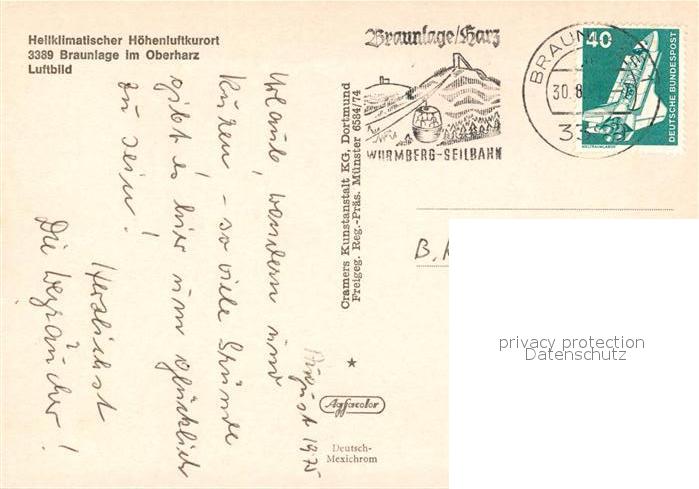 Heilklimatischer Höhenluftkurort
3389 Braunlage im Oberharz
Luftbild
August 1975
Urlaub, wandern und
Kuren - so viele Gründe
gibt es hier um glücklich
zu sein!
Herzlichst
Die
Cramers Kunstanstalt KG, Dortmund
Freigeg. Reg.-Präs. Münster 6584/74
Agfacolor
Deutsch-
Mexichrom
Braunlage/Harz
WURMBERG-SEILBAHN
BRAUN
30.8
33
40
DEUTSCHE BUNDESPOST
WELTRAUMLABOR
B.
privacy protection
Datenschutz